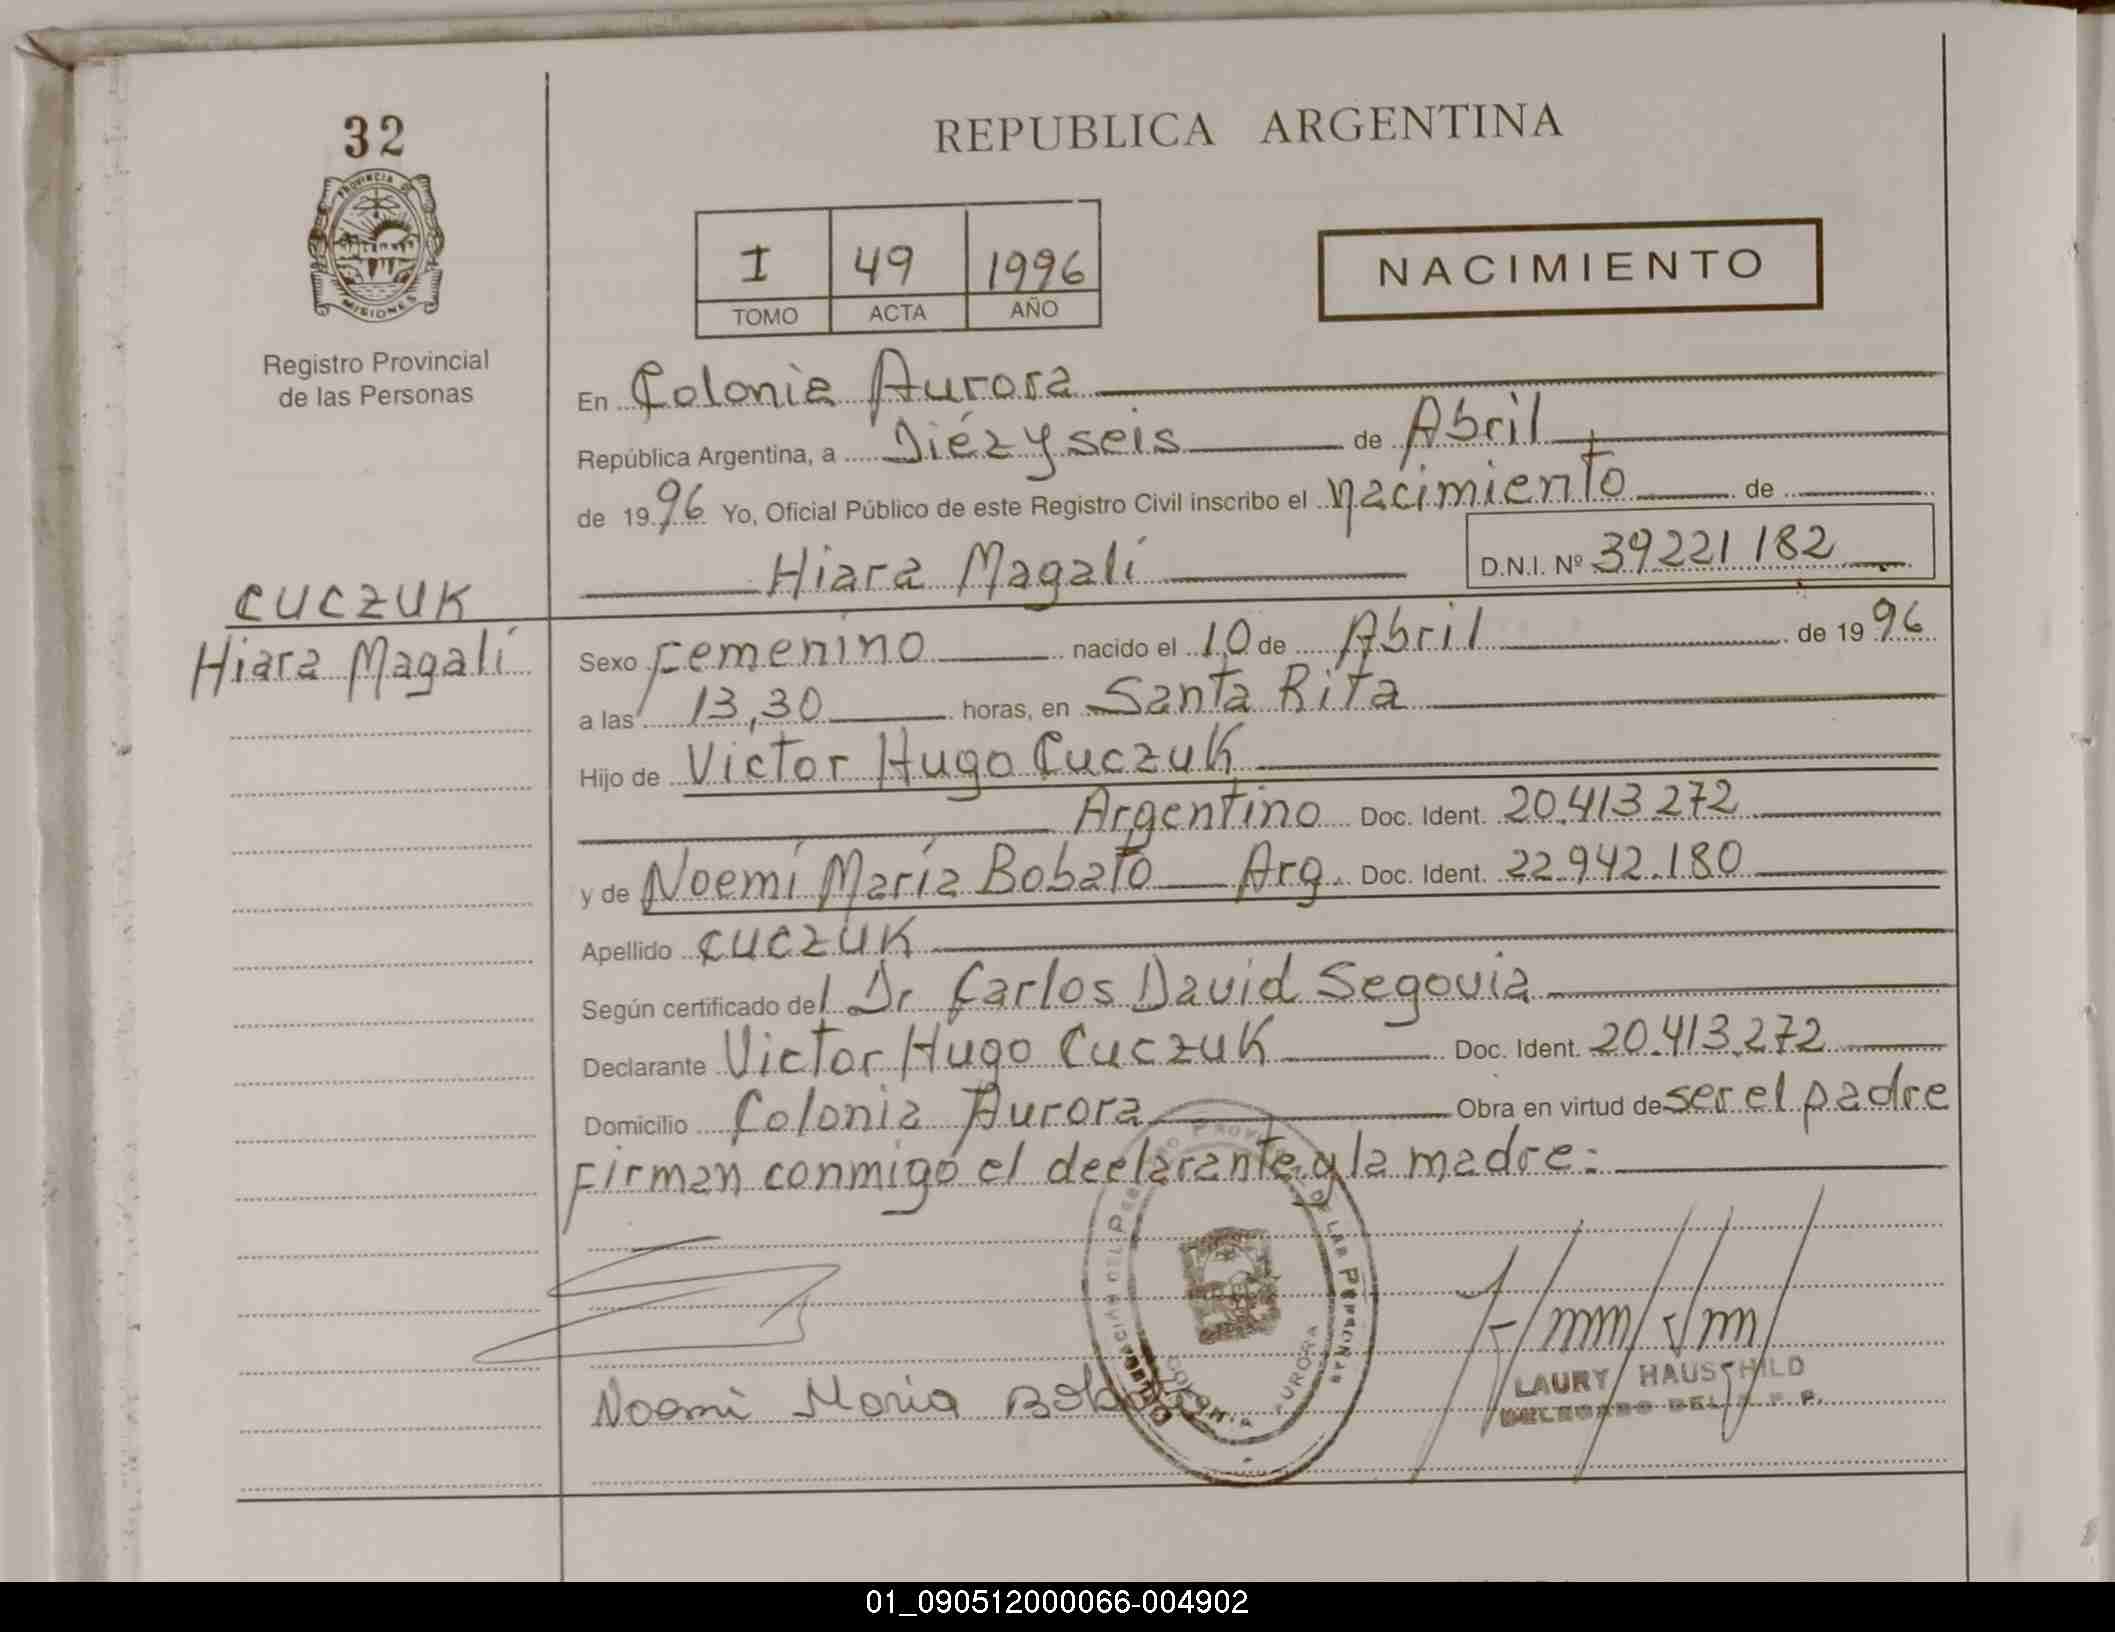 32
PROVINCIA DE
MISIONES
Registro Provincial
de las Personas
CUCZUK
Hiara Magalí
REPUBLICA ARGENTINA
I 49 1996
TOMO ACTA AÑO
NACIMIENTO
En Colonia Aurora
República Argentina, a Diéz y seis de Abril
de 1996 Yo, Oficial Público de este Registro Civil inscribo el nacimiento de
Hiara Magalí D.N.I. Nº 39221182
Sexo Femenino nacido el 10 de Abril de 1996
a las 13,30 horas, en Santa Rita
Hijo de Victor Hugo Cuczuk
Argentino Doc. Ident. 20.413.272
y de Noemí María Bobato Arg. Doc. Ident. 22.942.180
Apellido CUCZUK
Según certificado del Dr Carlos David Segovia
Declarante Victor Hugo Cuczuk Doc. Ident. 20.413.272
Domicilio Colonia Aurora Obra en virtud de ser el padre
Firman conmigo el declarante y la madre:
DE LAS PERSONAS
COLONIA AURORA
Noemi Maria
LAURY HAUSCHILD
DELEGADO DEL R. P.
01_090512000066-004902